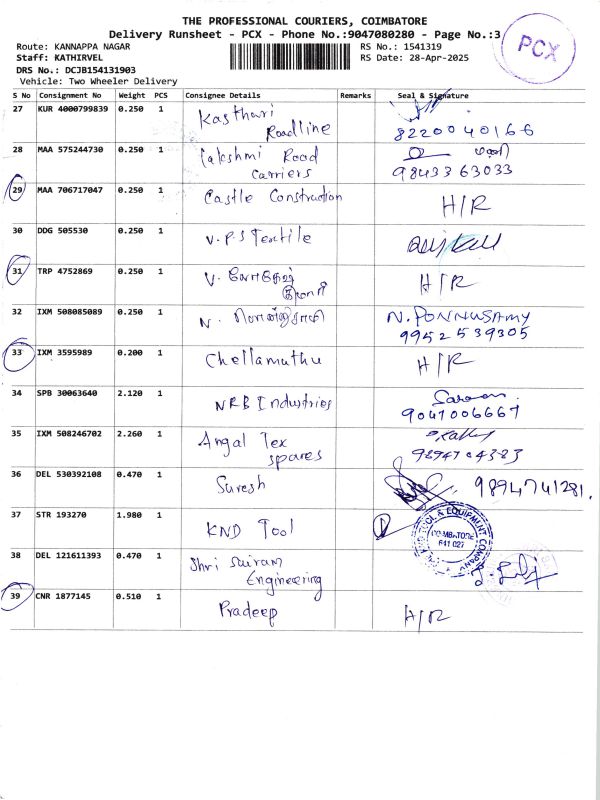 THE PROFESSIONAL COURIERS, COIMBATORE
Delivery Runsheet - PCX - Phone No.:9047080280 - Page No.:3
Route: KANNAPPA NAGAR
RS No.: 1541319
Staff: KATHIRVEL
RS Date: 28-Apr-2025
DRS No.: DCJB154131903
Vehicle: Two Wheeler Delivery
PCX
S No Consignment No Weight PCS Consignee Details Remarks Seal & Signature
27 KUR 4000799839 0.250 1 Kasthuri
Roadline 8220040166
28 MAA 575244730 0.250 1 Lakshmi Road
Carriers 9843363033
29 MAA 706717047 0.250 1 Castle Construction H/R
30 DDG 505530 0.250 1 V.P.S Textile
31 TRP 4752869 0.250 1 V. H/R
32 IXM 508085089 0.250 1 N. N. PONNUSAMY
9952539305
33 IXM 3595989 0.200 1 Chellamuthu H/R
34 SPB 30063640 2.120 1 NRB Industries
9047006667
35 IXM 508246702 2.260 1 Angal Tex
spares 9894704383
36 DEL 530392108 0.470 1 Suresh 9894741281.
37 STR 193270 1.980 1 KND Tool
TOOL & EQUIPMENT COMPANY
COIMBATORE
641 027
38 DEL 121611393 0.470 1 Shri Sairam
Engineering
39 CNR 1877145 0.510 1 Pradeep H/R